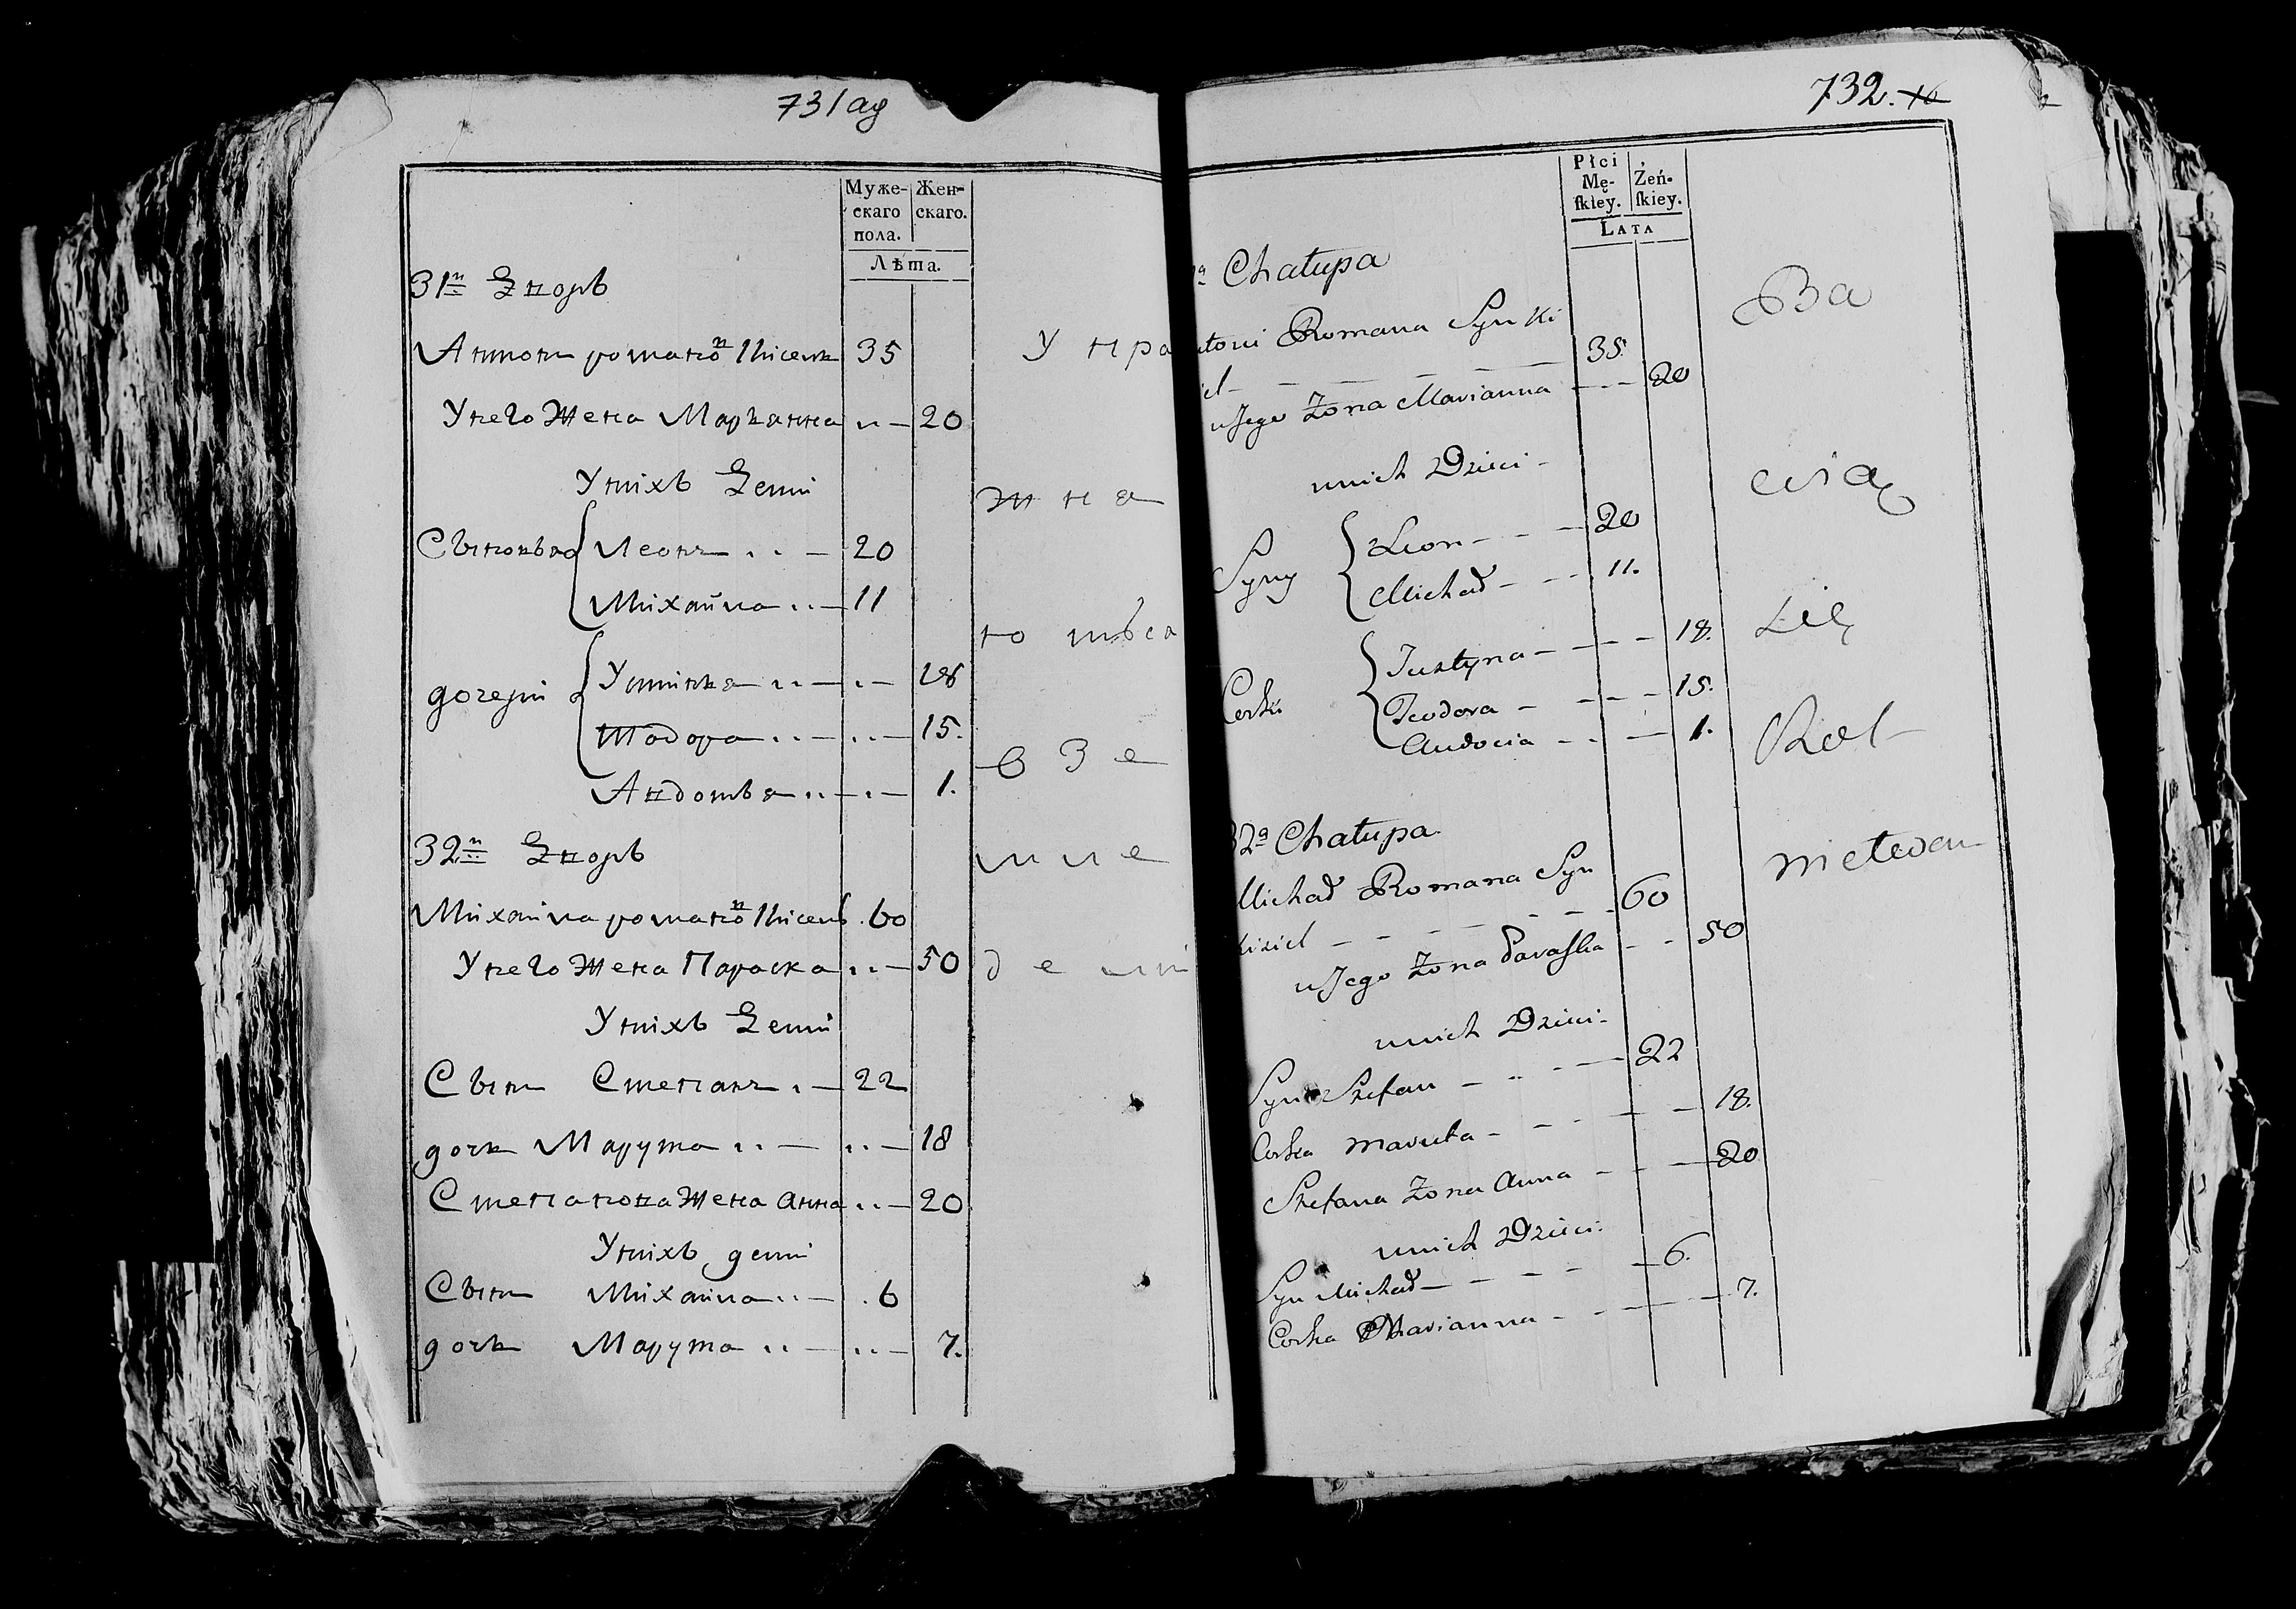 731 ag
Муже-
скаго
пола.
Жен-
скаго.
Лѣта.
31й Дворъ
Антонъ романов Кисель 35
У него Жена Марьанна 20
У нихъ Дети
Сыновья Леонъ 20
Михайла 11
дочери Устинья 18
Тодора 15.
Авдотья 1.
32й Дворъ
Михайла романов Кисель 60
У него Жена Параска 50
У нихъ Дети
Сынъ Степанъ 22
дочь Марута 18
Степанова Жена анна 20
У нихъ дети
Сынъ Михайла 6
дочь Марута 7.
732.
Płci
Mę-
ſkiey.
Żeń-
ſkiey.
Lata
Chałupa
Romana Syn Ki
35.
u Jego Żona Marianna 20
u nich Dzieci
Syny Leon 20
Michał 11.
Corki Justyna 18.
Teodora 15.
Audocia 1.
32a Chałupa
Michał Romana Syn
Kisiel 60
u Jego Żona Paraſka 50
u nich Dzieci
Syn Stefan 22
Corka Maruta 18.
Stefana Żona Anna 20
u nich Dzieci
Syn Michał 6.
Corka Marianna 7.